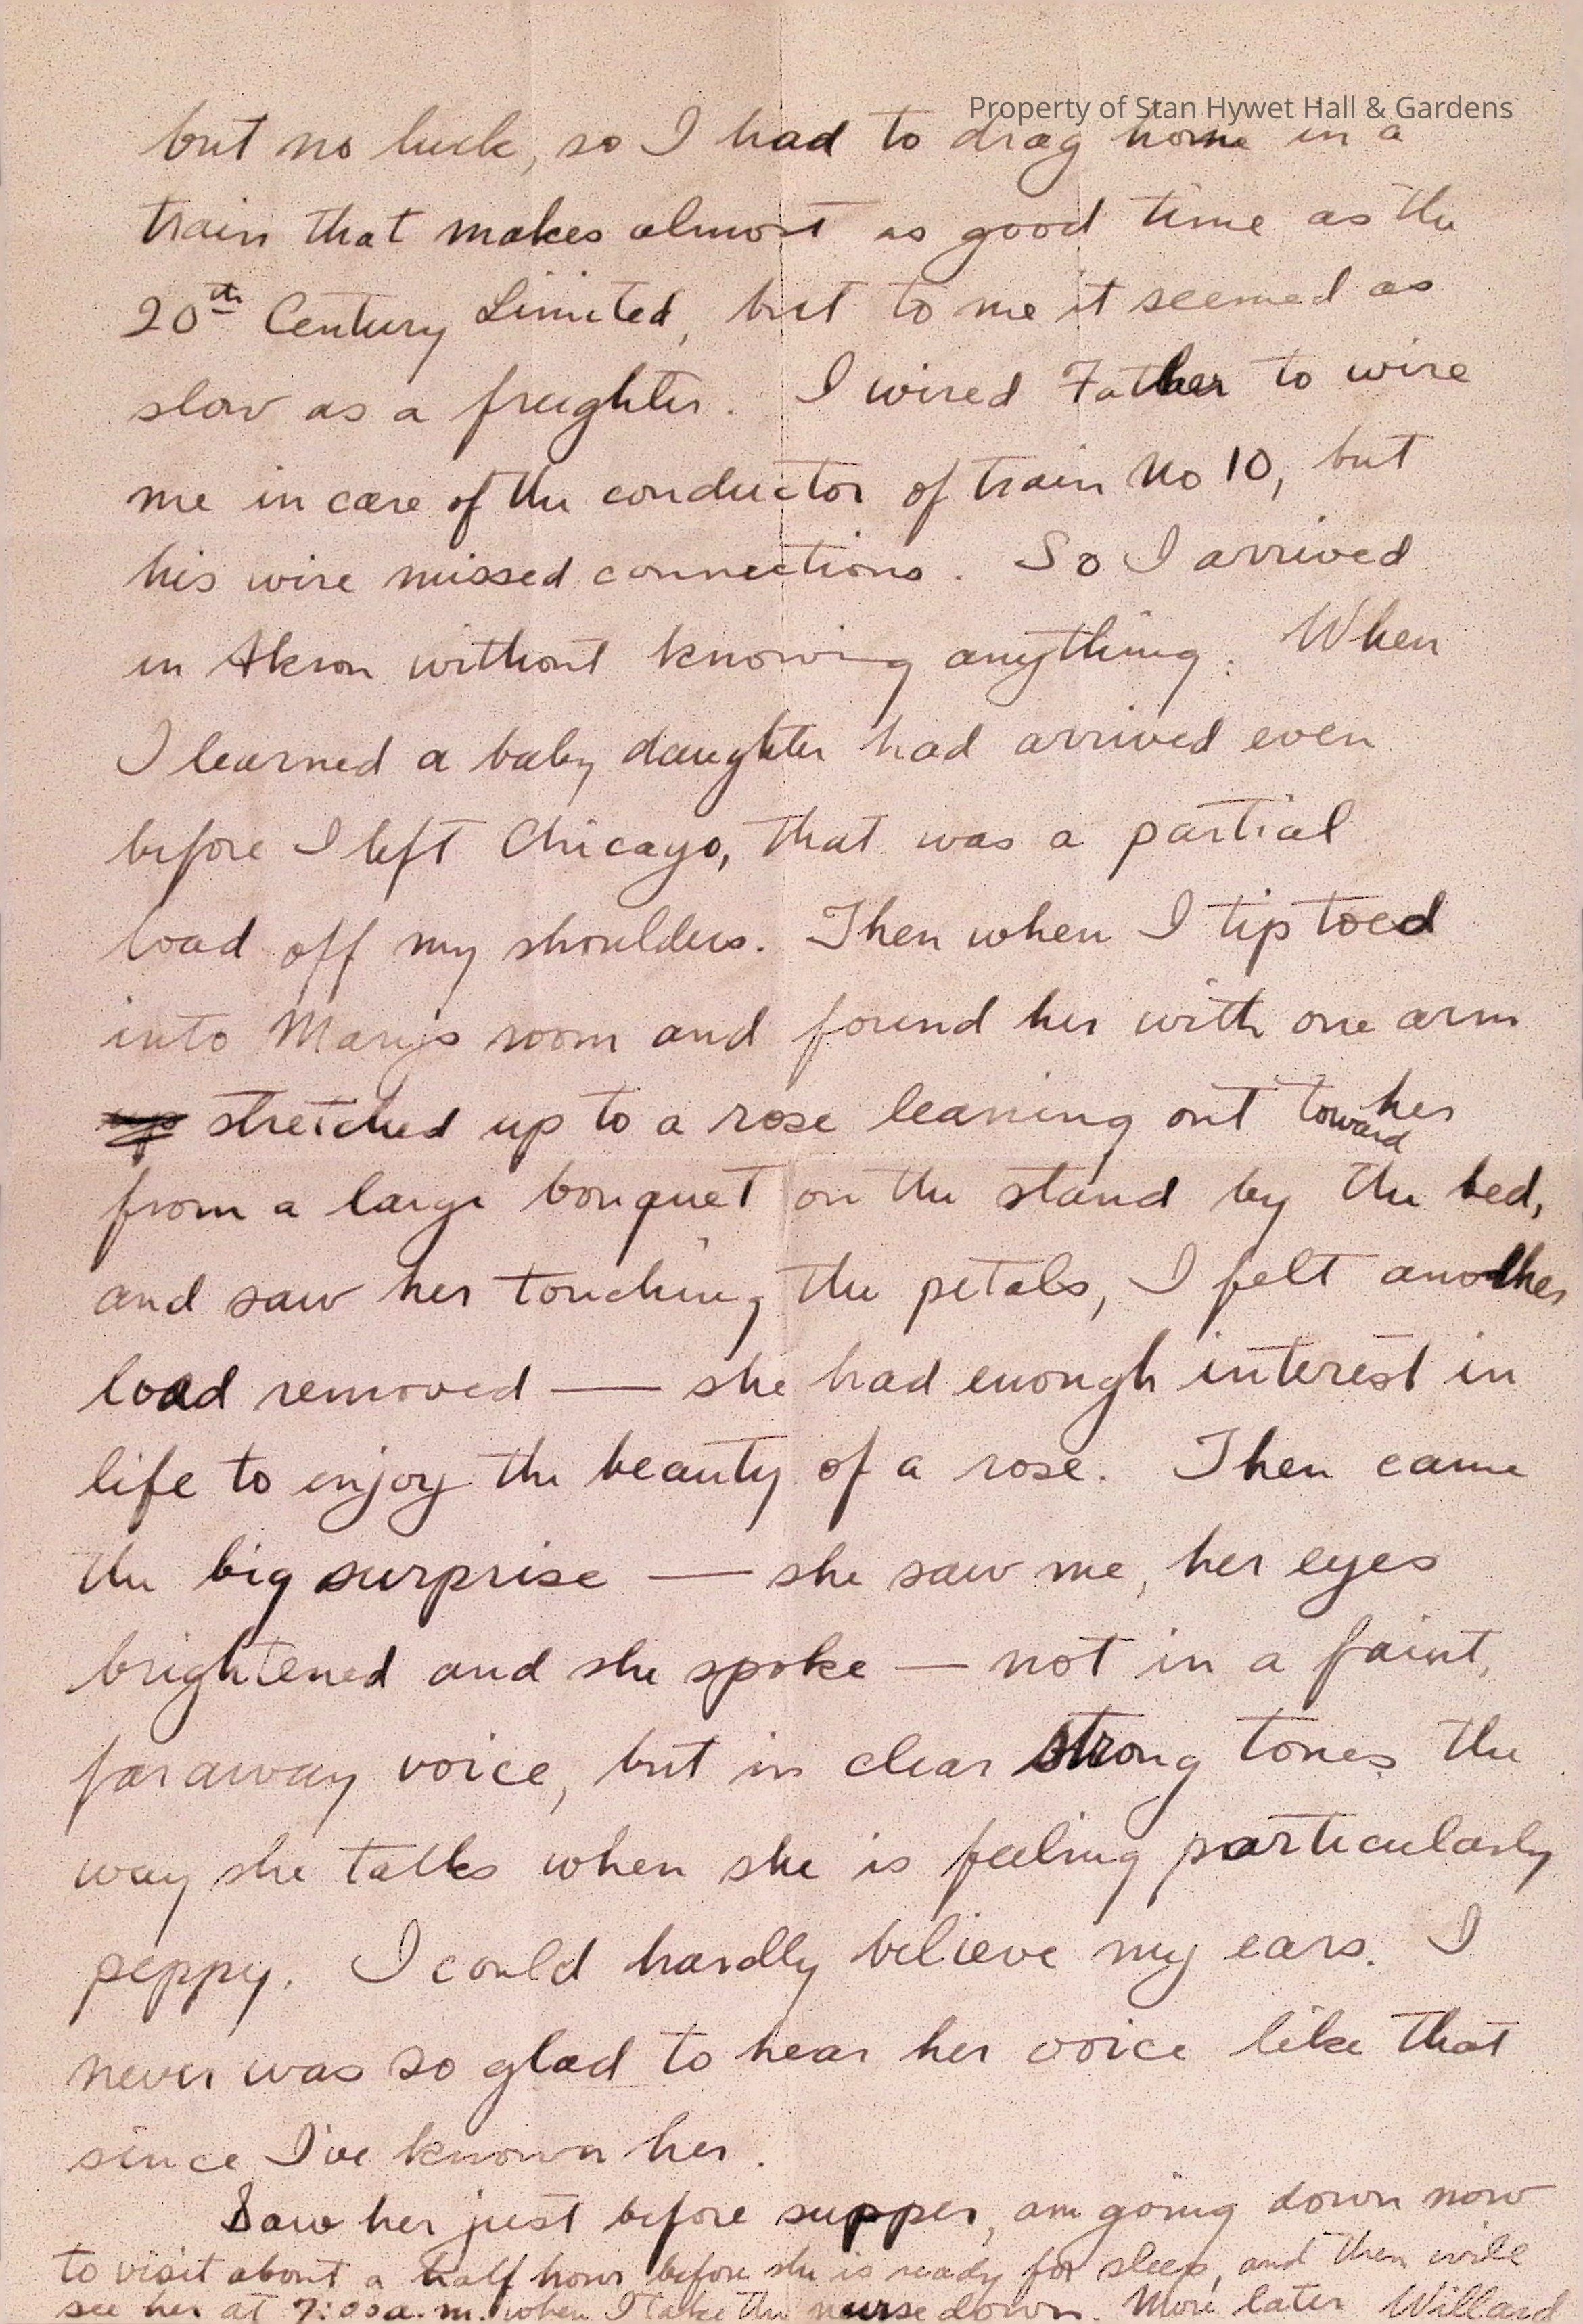 Property of Stan Hywet Hall & Gardens
but no luck, so I had to drag home in a
train that makes almost as good time as the
20th Century Limited, but to me it seemed as
slow as a freighter. I wired Father to wire
me in care of the conductor of train No 10, but
his wire missed connections. So I arrived
in Akron without knowing anything. When
I learned a baby daughter had arrived even
before I left Chicago, that was a partial
load off my shoulders. Then when I tip toed
into Mary's room and found her with one arm
up stretched up to a rose leaning out toward her
from a large bouquet on the stand by the bed,
and saw her touching the petals, I felt another
load removed — she had enough interest in
life to enjoy the beauty of a rose. Then came
the big surprise — she saw me, her eyes
brightened and she spoke — not in a faint,
faraway voice, but in clear strong tones the
way she talks when she is feeling particularly
peppy. I could hardly believe my ears. I
never was so glad to hear her voice like that
since I've known her.
Saw her just before supper, am going down now
to visit about a half hour before she is ready for sleep, and then will
see her at 7:00 a.m. when I take the nurse down. More later Willard